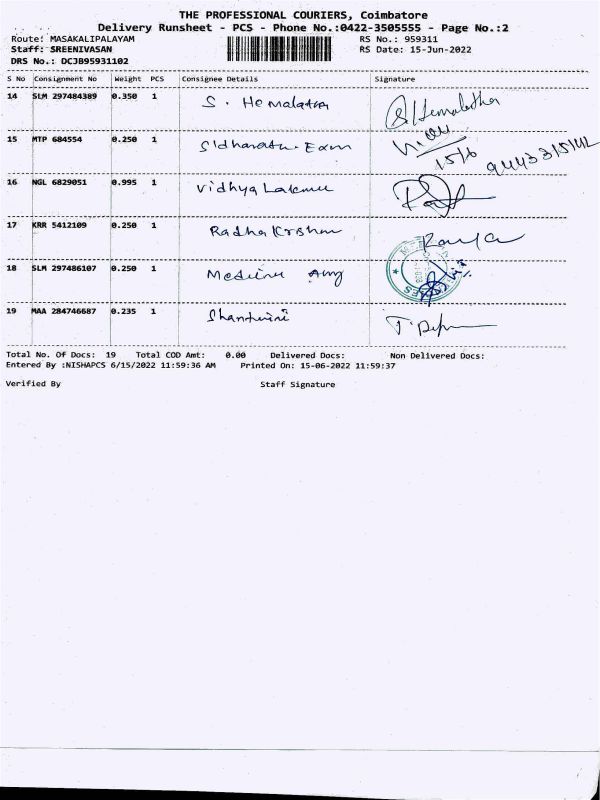 THE PROFESSIONAL COURIERS, Coimbatore
Delivery Runsheet - PCS - Phone No.:0422-3505555 - Page No.:2
Route: MASAKALIPALAYAM RS No.: 959311
Staff: SREENIVASAN RS Date: 15-Jun-2022
DRS No.: DCJB95931102
S No Consignment No Weight PCS Consignee Details Signature
14 SLM 297484389 0.350 1 S. Hemalatha S/Hemalatha
15 MTP 684554 0.250 1 Sidharath. Exam
15/6
16 NGL 6829051 0.995 1 Vidhya Laksmi
17 KRR 5412109 0.250 1 Radha Krishn Ramya
18 SLM 297486107 0.250 1 Medicine
19 MAA 284746687 0.235 1 Shanthini
Total No. Of Docs: 19 Total COD Amt: 0.00 Delivered Docs: Non Delivered Docs:
Entered By :NISHAPCS 6/15/2022 11:59:36 AM Printed On: 15-06-2022 11:59:37
Verified By Staff Signature